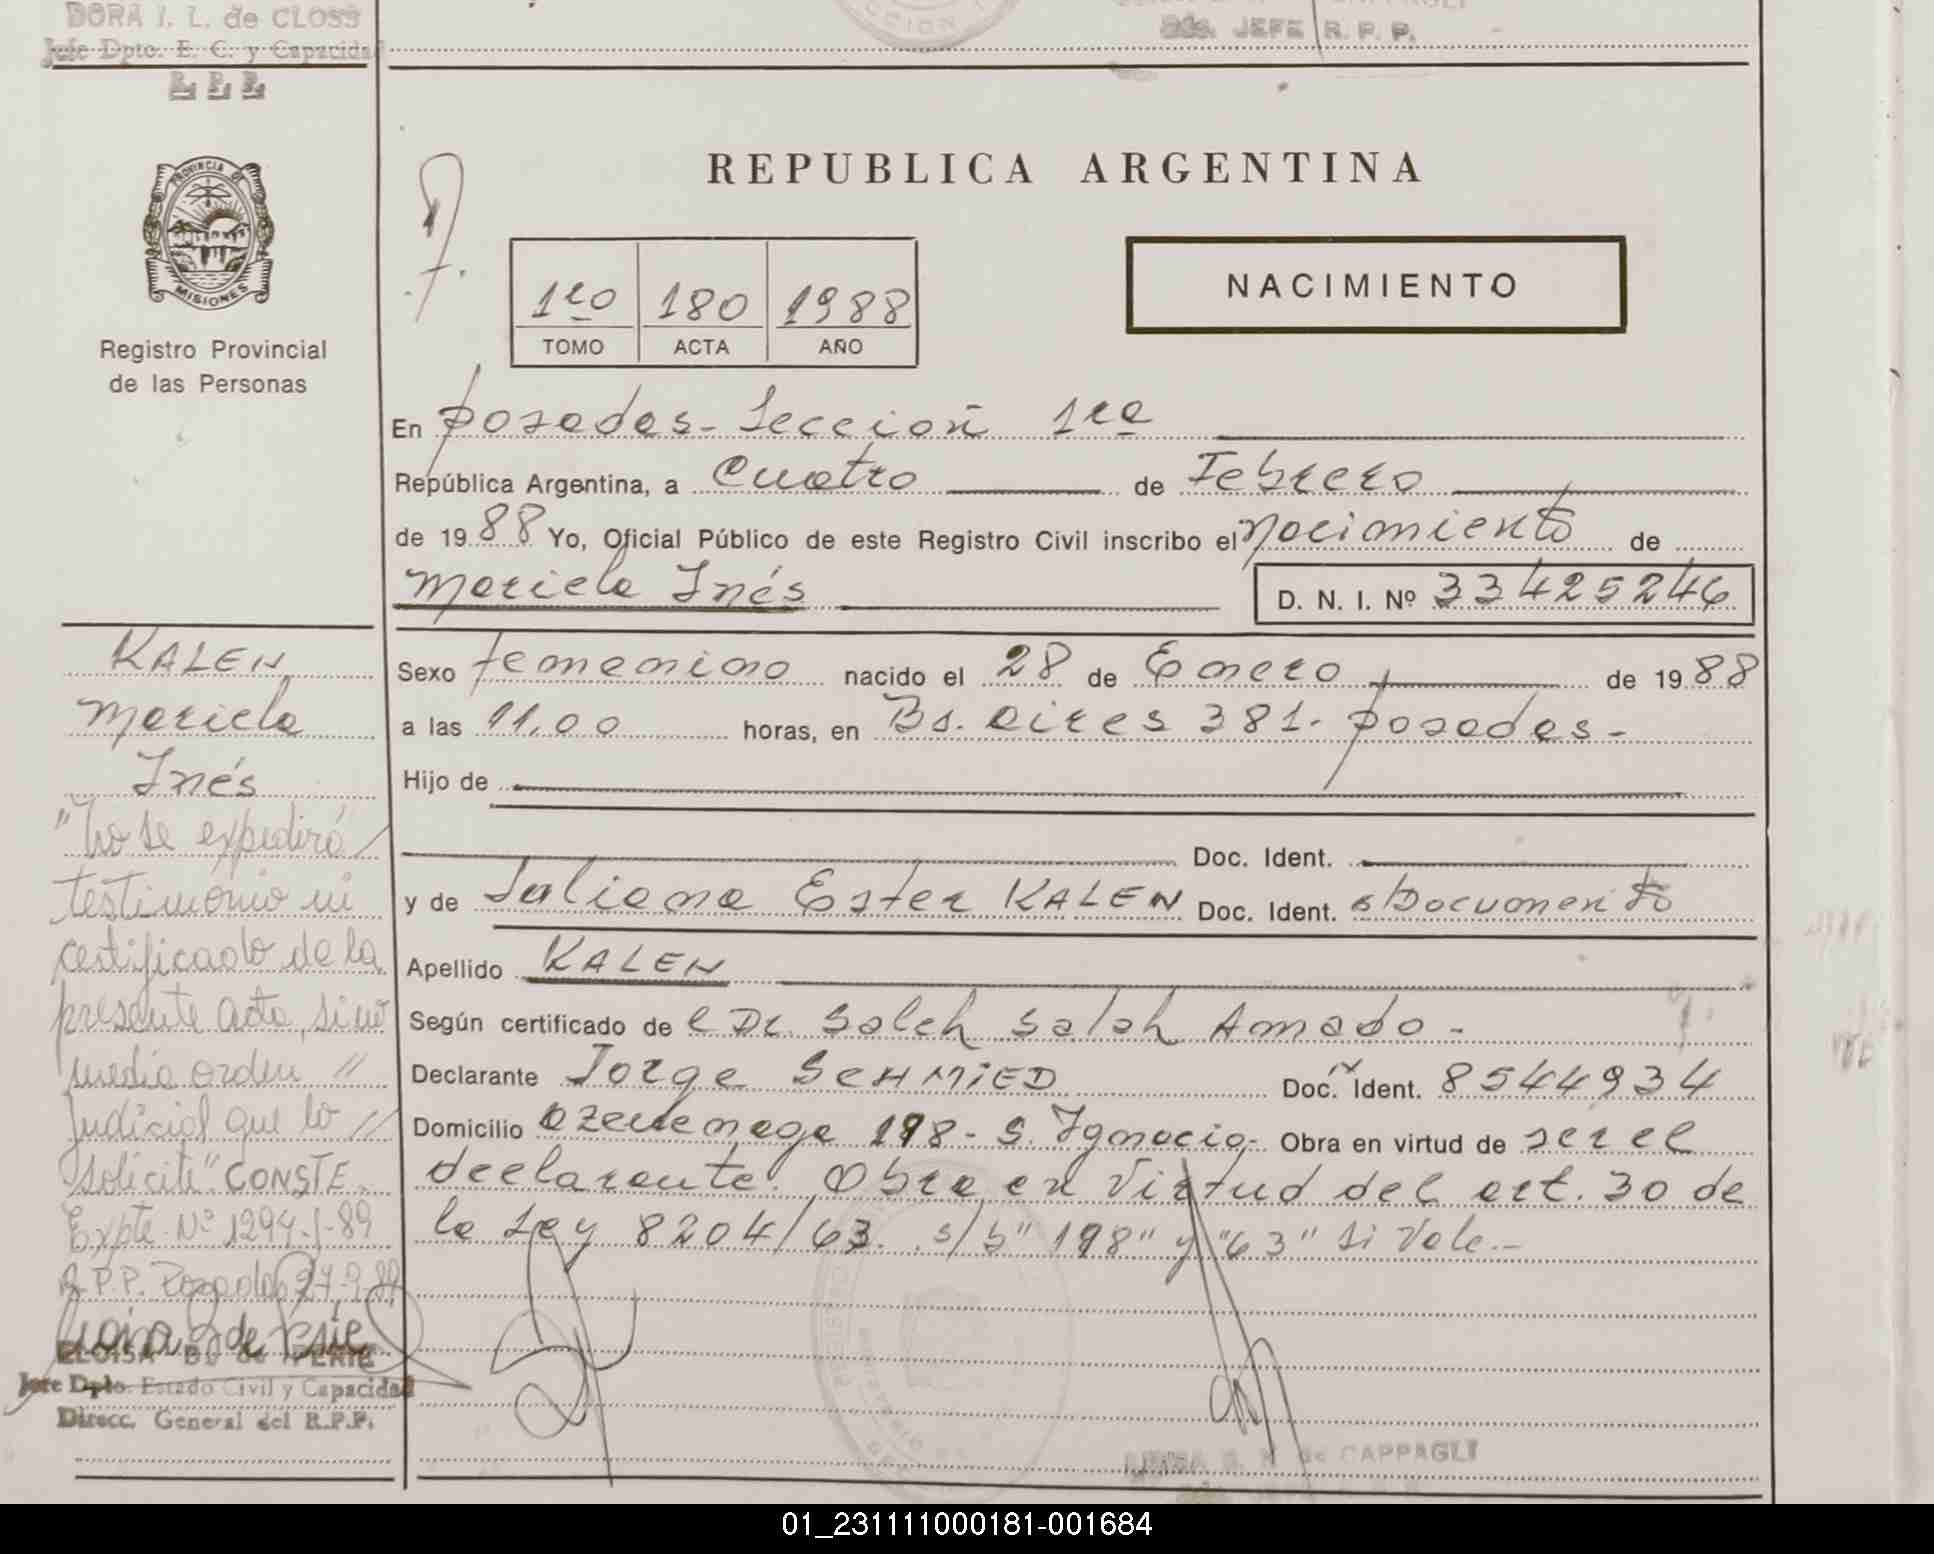 DORA I. L. de CLOSS
Jefe Dpto. E. C. y Capacidad
R. P. P.
Sds. JEFE R. P. P.
PROVINCIA DE
MISIONES
Registro Provincial
de las Personas
REPUBLICA ARGENTINA
1ro 180 1988
TOMO ACTA AÑO
NACIMIENTO
En Posadas - Sección 1ra
República Argentina, a Cuatro de Febrero
de 19 88 Yo, Oficial Público de este Registro Civil inscribo el nacimiento de
Mariela Inés D. N. I. Nº 33425246
Sexo femenino nacido el 28 de Enero de 19 88
a las 11,00 horas, en Bs. Aires 381 - Posadas -
Hijo de
Doc. Ident.
y de Juliana Ester KALEN Doc. Ident. s/Documento
Apellido KALEN
Según certificado de el Dr. Saleh Salah Amado -
Declarante Jorge SCHMIED Doc. Ident. 8544934
Domicilio 198 - S. Ignacio - Obra en virtud de ser el
declarante. Obra en Virtud del art. 30 de
la Ley 8204/63. s/b "198" y "63" Si Vale.-
KALEN
Mariela
Inés
"No se expedirá
testimonio ni
certificado de la
presente acta, sino
media orden //
Judicial que lo //
solicite" CONSTE.
Expte. Nº 1294-J-89
R.P.P. Posadas 27-9-89
ELOISA B. de PERIE
Jefe Dpto. Estado Civil y Capacidad
Direcc. General del R.P.P.
LUISA G. N. de CAPPAGLI
01_231111000181-001684